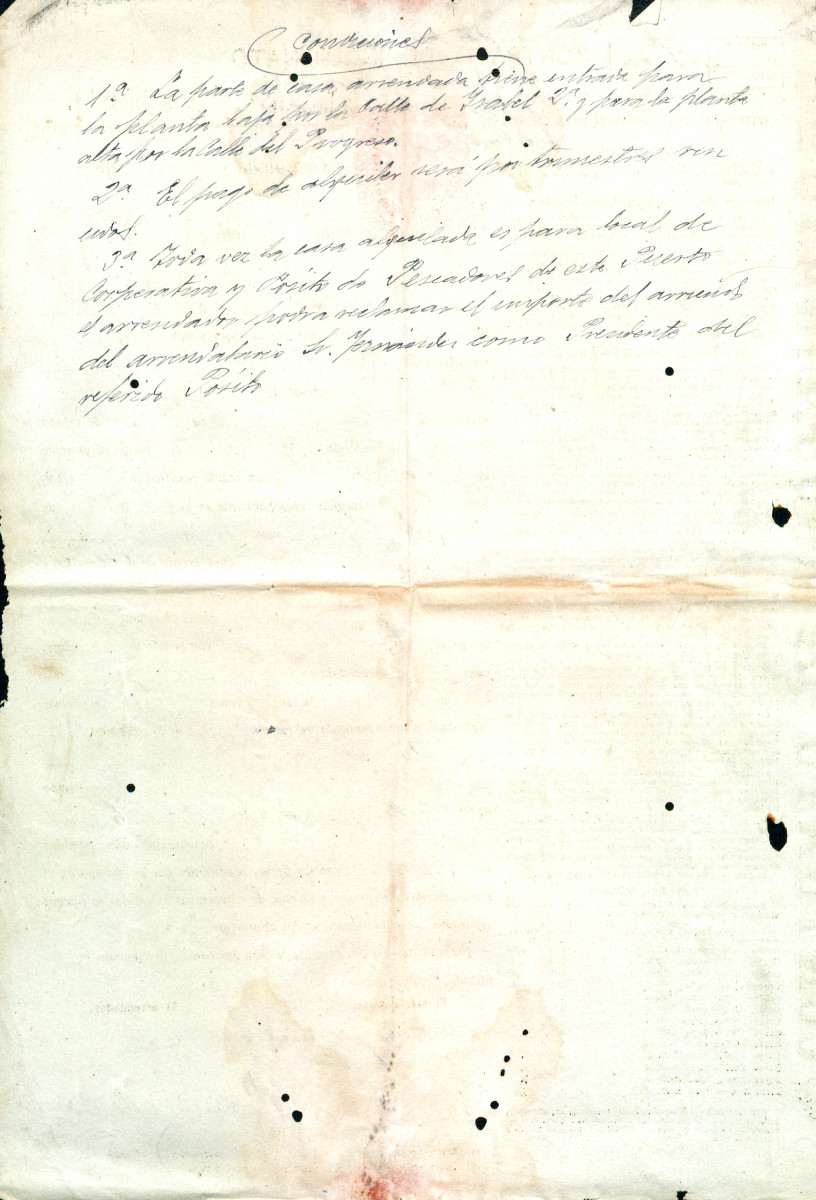 Condiciones
1ª. La parte de casa, arrendada tiene entrada para
la planta baja por la Calle de Isabel 2ª y para la planta
alta por la Calle del Progreso.
2ª. El pago de alquiler será por trimestres ven
cidos.
3ª Toda vez la casa alquilada es para local de
Cooperativa y Pósito de Pescadores de este Puerto
el arrendador podra reclamar el importe del arriendo
del arrendatario Sr. Fernández como Presidente del
referido Pósito